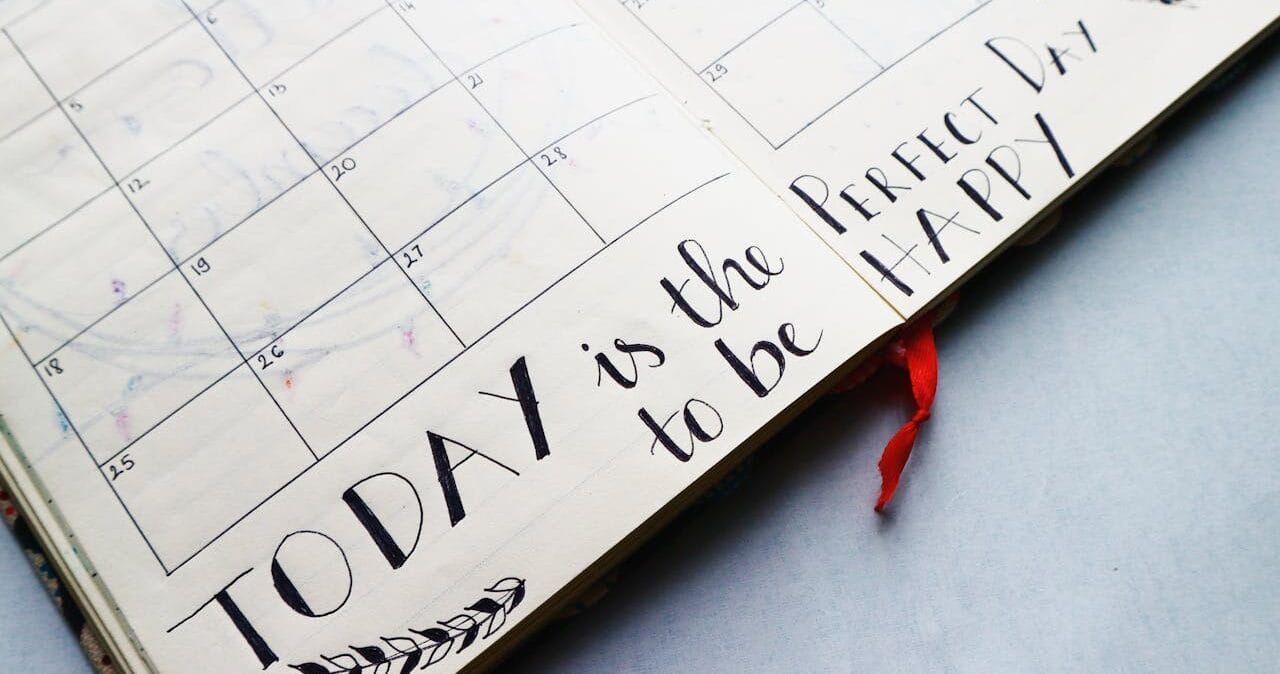 5 6
12 13 14
18 19 20 21
25 26 27 28
29
TODAY is the PERFECT DAY
to be HAPPY